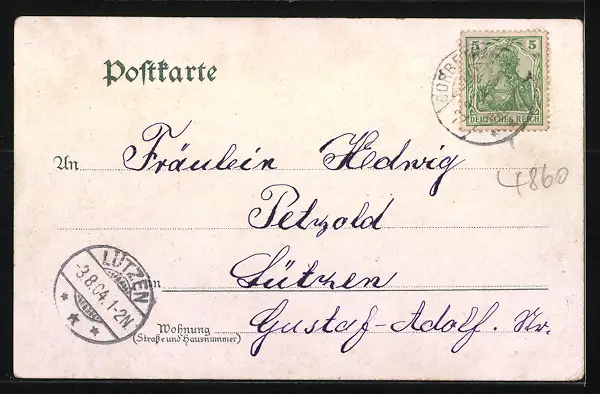 Postkarte
5 5
DEUTSCHES REICH
An Fräulein Hedwig
4860
Petzold
in Lützen
LÜTZEN
-3.8.04. 1-2N
Wohnung
(Straße und Hausnummer)
Gustaf-Adolf. Str.